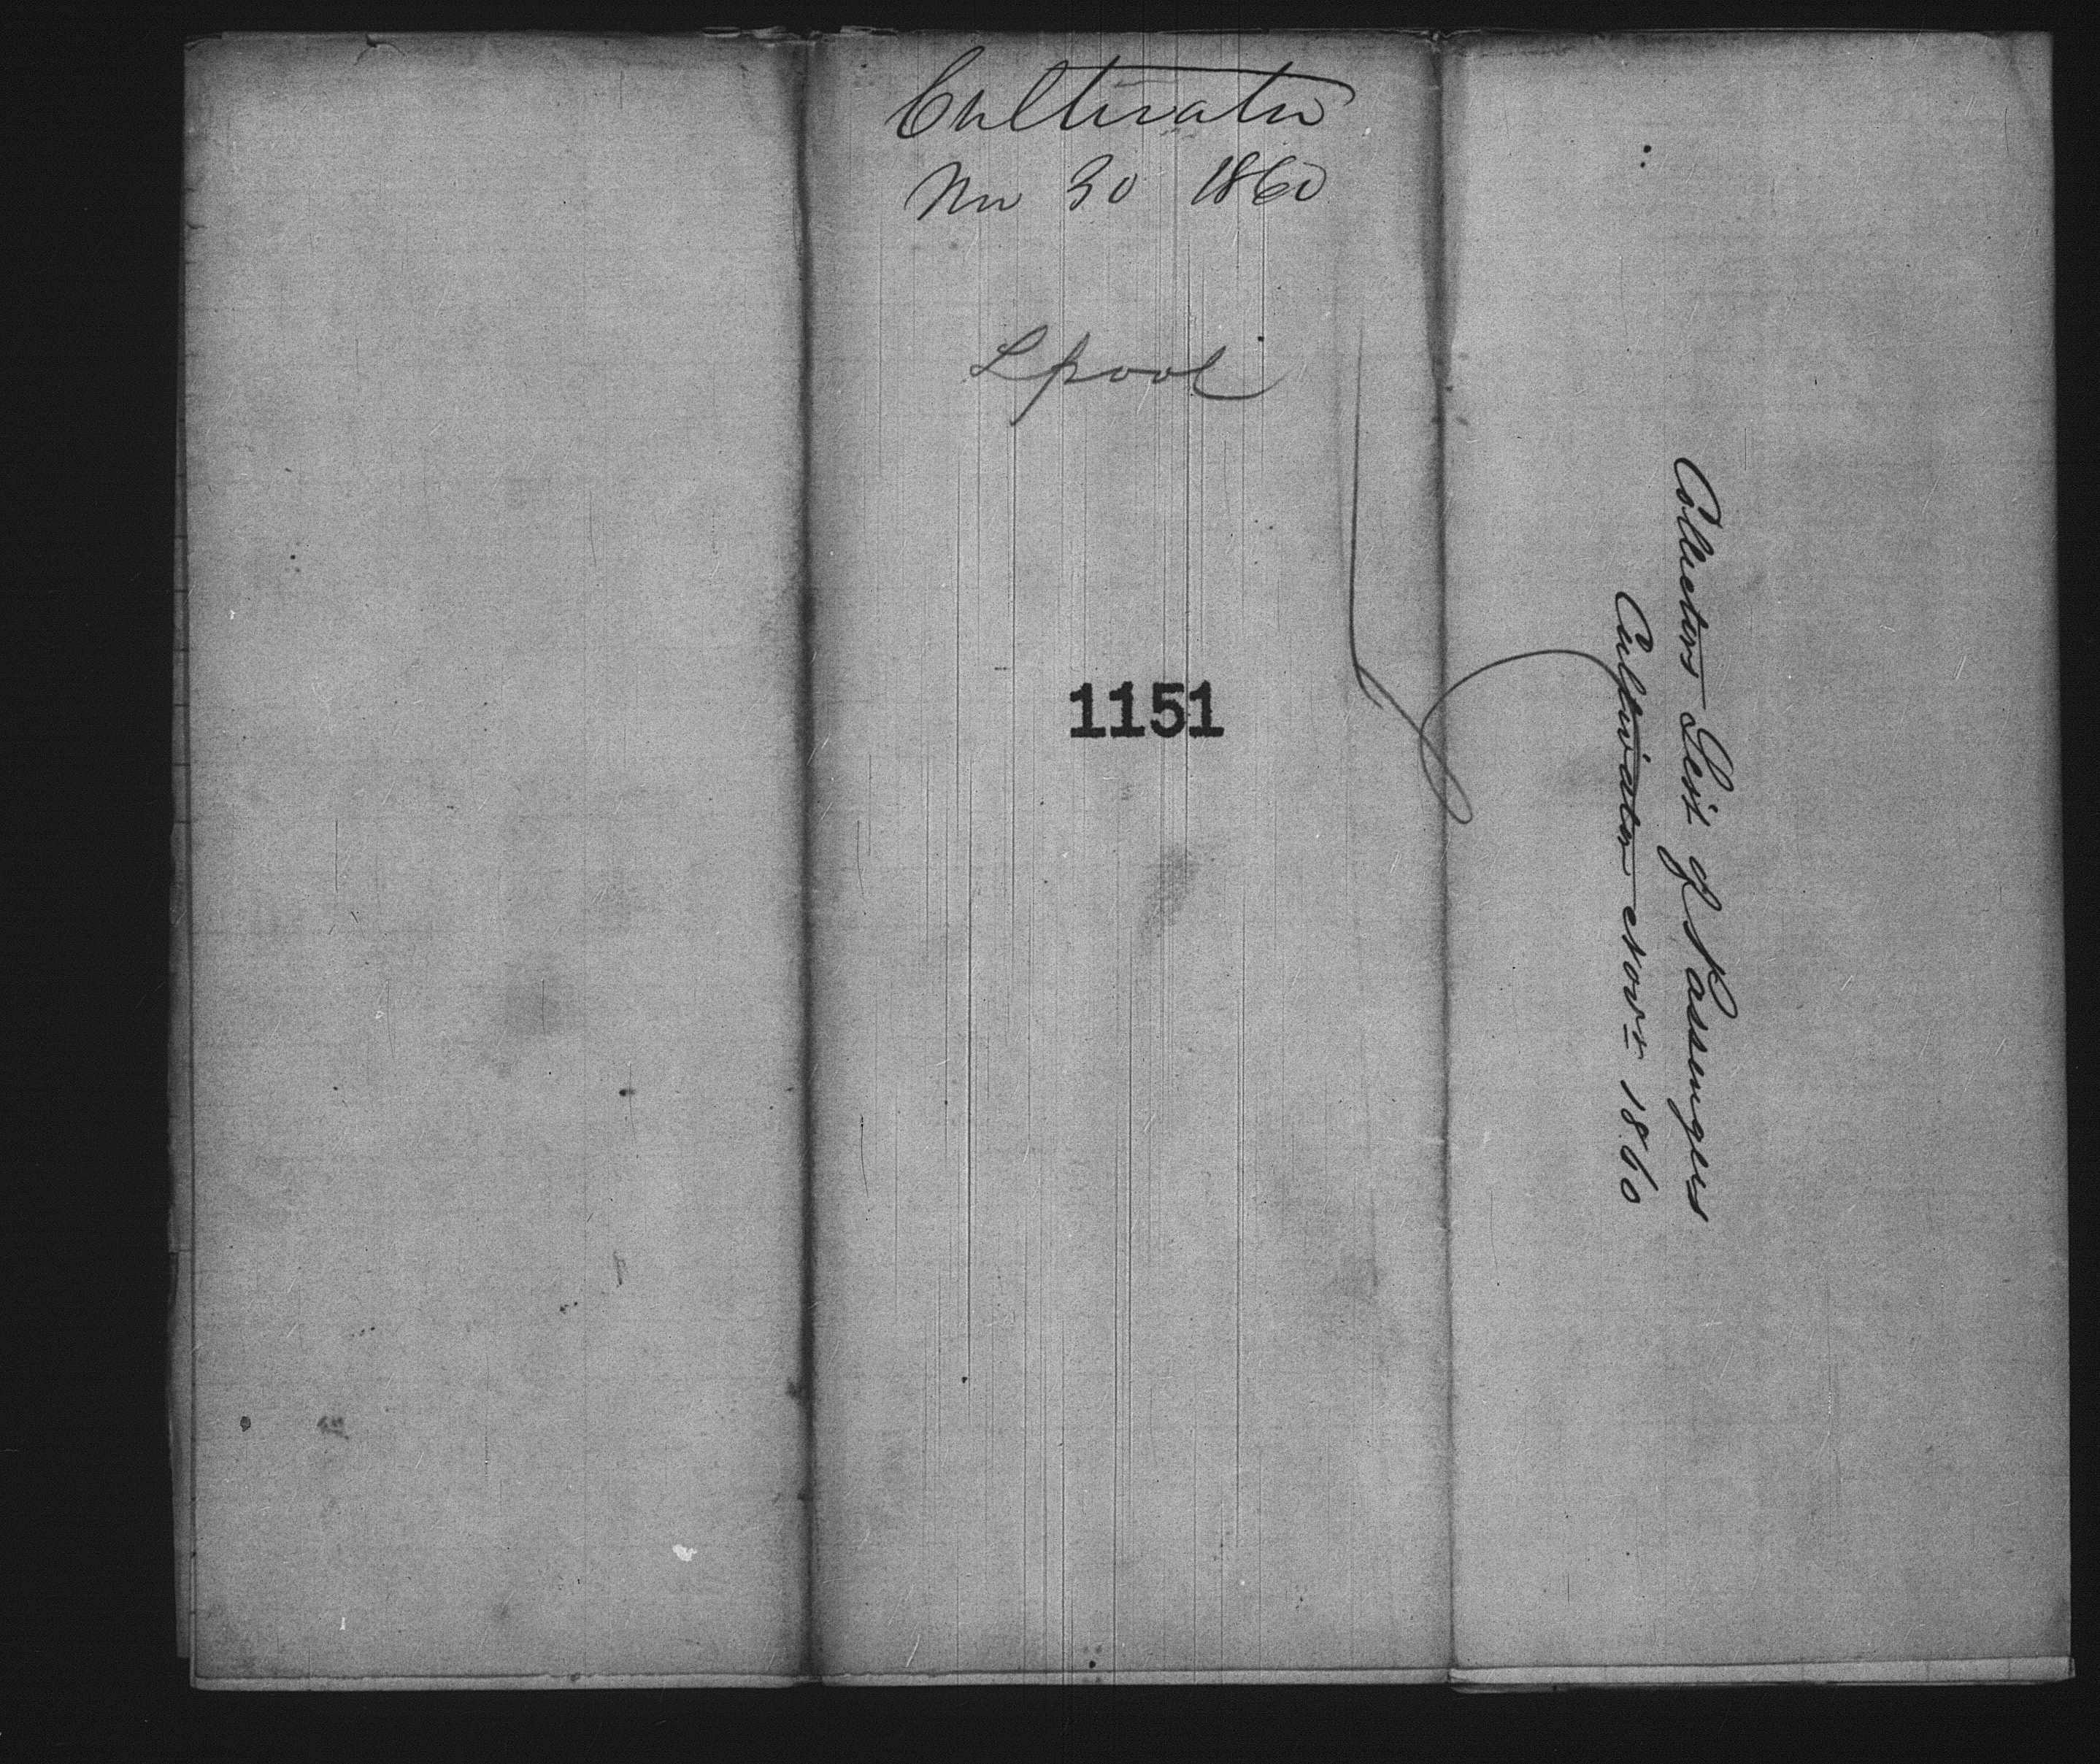 Cultivator
Nov 30 1860
Lpool
1151
Collectors List of Passengers
Cultivator Novr 1860